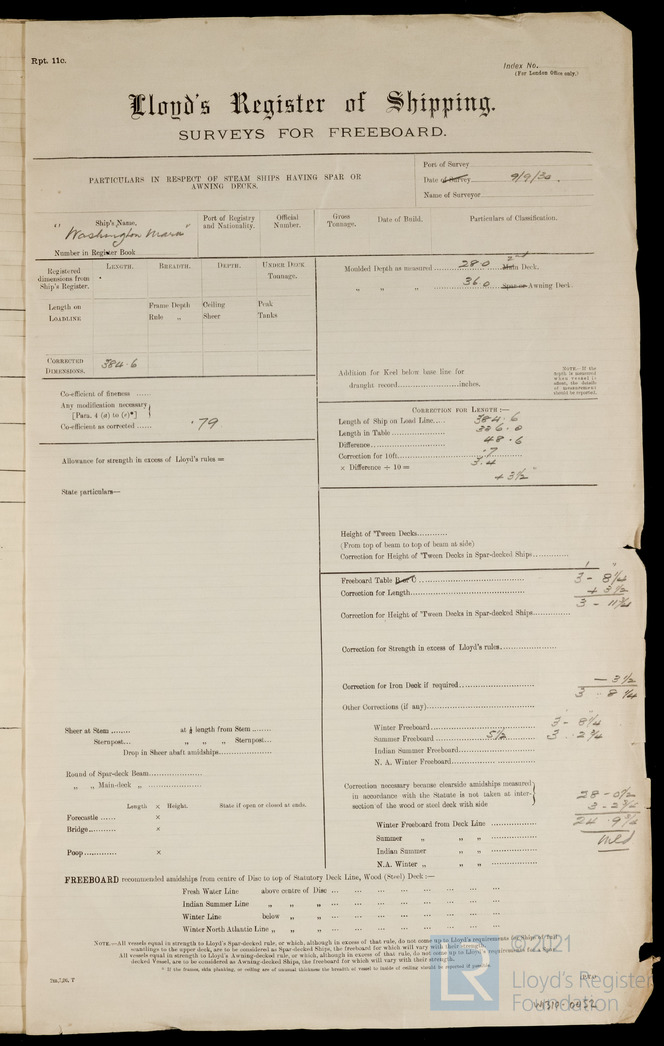 Rpt. 11c.
Index No.
(For London Office only.)
Lloyd's Register of Shipping.
SURVEYS FOR FREEBOARD.
PARTICULARS IN RESPECT OF STEAM SHIPS HAVING SPAR OR
AWNING DECKS.
Port of Survey
Date of Survey 9/9/30.
Name of Surveyor
Ship's Name.
"Washington Maru"
Number in Register Book
Port of Registry
and Nationality.
Official
Number.
Gross
Tonnage.
Date of Build.
Particulars of Classification.
Registered
dimensions from
Ship's Register.
LENGTH.
BREADTH.
DEPTH.
UNDER DECK
TONNAGE.
Length on
LOADLINE
Frame Depth
Rule „
Ceiling
Sheer
Peak
Tanks
CORRECTED
DIMENSIONS.
384.6
Moulded Depth as measured 28.0 2nd Main Deck.
„ „ „ 36.0 Spar or Awning Deck.
Addition for Keel below base line for
draught record inches.
Co-efficient of fineness
Any modification necessary
[Para. 4 (a) to (e)*]
Co-efficient as corrected .79
Allowance for strength in excess of Lloyd's rules =
State particulars—
CORRECTION FOR LENGTH :—
Length of Ship on Load Line 384.6
Length in Table 336.0
Difference 48.6
Correction for 10ft. .7
× Difference ÷ 10 = 3.4
+ 3½"
Height of 'Tween Decks
(From top of beam to top of beam at side)
Correction for Height of 'Tween Decks in Spar-decked Ships
Freeboard Table B or C 3 - 8¼
Correction for Length + 3½
3 - 11¾
Correction for Height of 'Tween Decks in Spar-decked Ships
Correction for Strength in excess of Lloyd's rules
Correction for Iron Deck if required - 3½
3 . 8¼
Other Corrections (if any)
Winter Freeboard 3 - 8¼
Summer Freeboard 5½ 3 . 2¾
Indian Summer Freeboard
N. A. Winter Freeboard
Correction necessary because clearside amidships measured
in accordance with the Statute is not taken at inter-
section of the wood or steel deck with side
28 - 0½
3 - 2¾
24 . 9¾
mld
Winter Freeboard from Deck Line
Summer „ „ „
Indian Summer „ „
N.A. Winter „ „ „
Sheer at Stem at ⅛ length from Stem
Sternpost „ „ „ Sternpost
Drop in Sheer abaft amidships
Round of Spar-deck Beam
„ „ Main-deck „
Length × Height. State if open or closed at ends.
Forecastle ×
Bridge ×
Poop ×
FREEBOARD recommended amidships from centre of Disc to top of Statutory Deck Line, Wood (Steel) Deck :—
Fresh Water Line above centre of Disc
Indian Summer Line „ „ „
Winter Line below „ „
Winter North Atlantic Line „ „ „
NOTE.—All vessels equal in strength to Lloyd's Spar-decked rule, or which, although in excess of that rule, do not come up to Lloyd's requirements for Ships of full
scantlings to the upper deck, are to be considered as Spar-decked Ships, the freeboard for which will vary with their strength.
All vessels equal in strength to Lloyd's Awning-decked rule, or which, although in excess of that rule, do not come up to Lloyd's requirements for a Spar-
decked Vessel, are to be considered as Awning-decked Ships, the freeboard for which will vary with their strength.
© 2021
Lloyd's Register
Foundation
LR